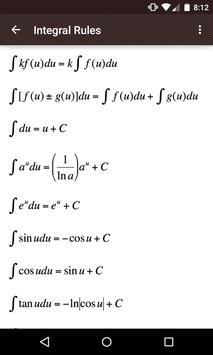 8:12
Integral Rules
∫kf(u)du = k∫f(u)du
∫[f(u) ± g(u)]du = ∫f(u)du + ∫g(u)du
∫du = u + C
∫aᵘdu = (1/ln a)aᵘ + C
∫eᵘdu = eᵘ + C
∫sin udu = −cos u + C
∫cos udu = sin u + C
∫tan udu = −ln|cos u| + C